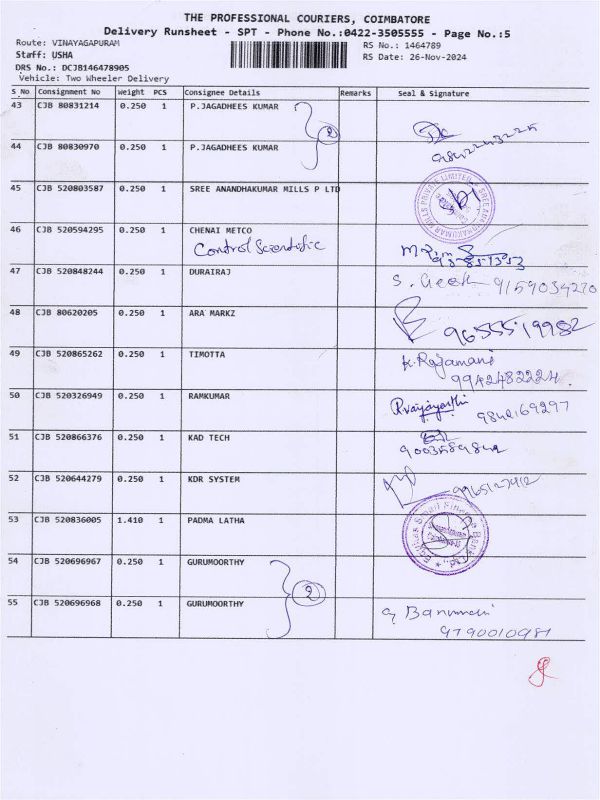 THE PROFESSIONAL COURIERS, COIMBATORE
Delivery Runsheet - SPT - Phone No.:0422-3505555 - Page No.:5
Route: VINAYAGAPURAM RS No.: 1464789
Staff: USHA RS Date: 26-Nov-2024
DRS No.: DCJB146478905
Vehicle: Two Wheeler Delivery
S No Consignment No Weight PCS Consignee Details Remarks Seal & Signature
43 CJB 80831214 0.250 1 P.JAGADHEES KUMAR
2
44 CJB 80830970 0.250 1 P.JAGADHEES KUMAR
45 CJB 520803587 0.250 1 SREE ANANDHAKUMAR MILLS P LTD
46 CJB 520594295 0.250 1 CHENAI METCO
Control Scientific
47 CJB 520848244 0.250 1 DURAIRAJ S. 9159034270
48 CJB 80620205 0.250 1 ARA MARKZ 9655519982
49 CJB 520865262 0.250 1 TIMOTTA K. Rajamani
9942482224.
50 CJB 520326949 0.250 1 RAMKUMAR 9842169297
51 CJB 520866376 0.250 1 KAD TECH
52 CJB 520644279 0.250 1 KDR SYSTEM
53 CJB 520836005 1.410 1 PADMA LATHA
54 CJB 520696967 0.250 1 GURUMOORTHY
2
55 CJB 520696968 0.250 1 GURUMOORTHY
9790010981